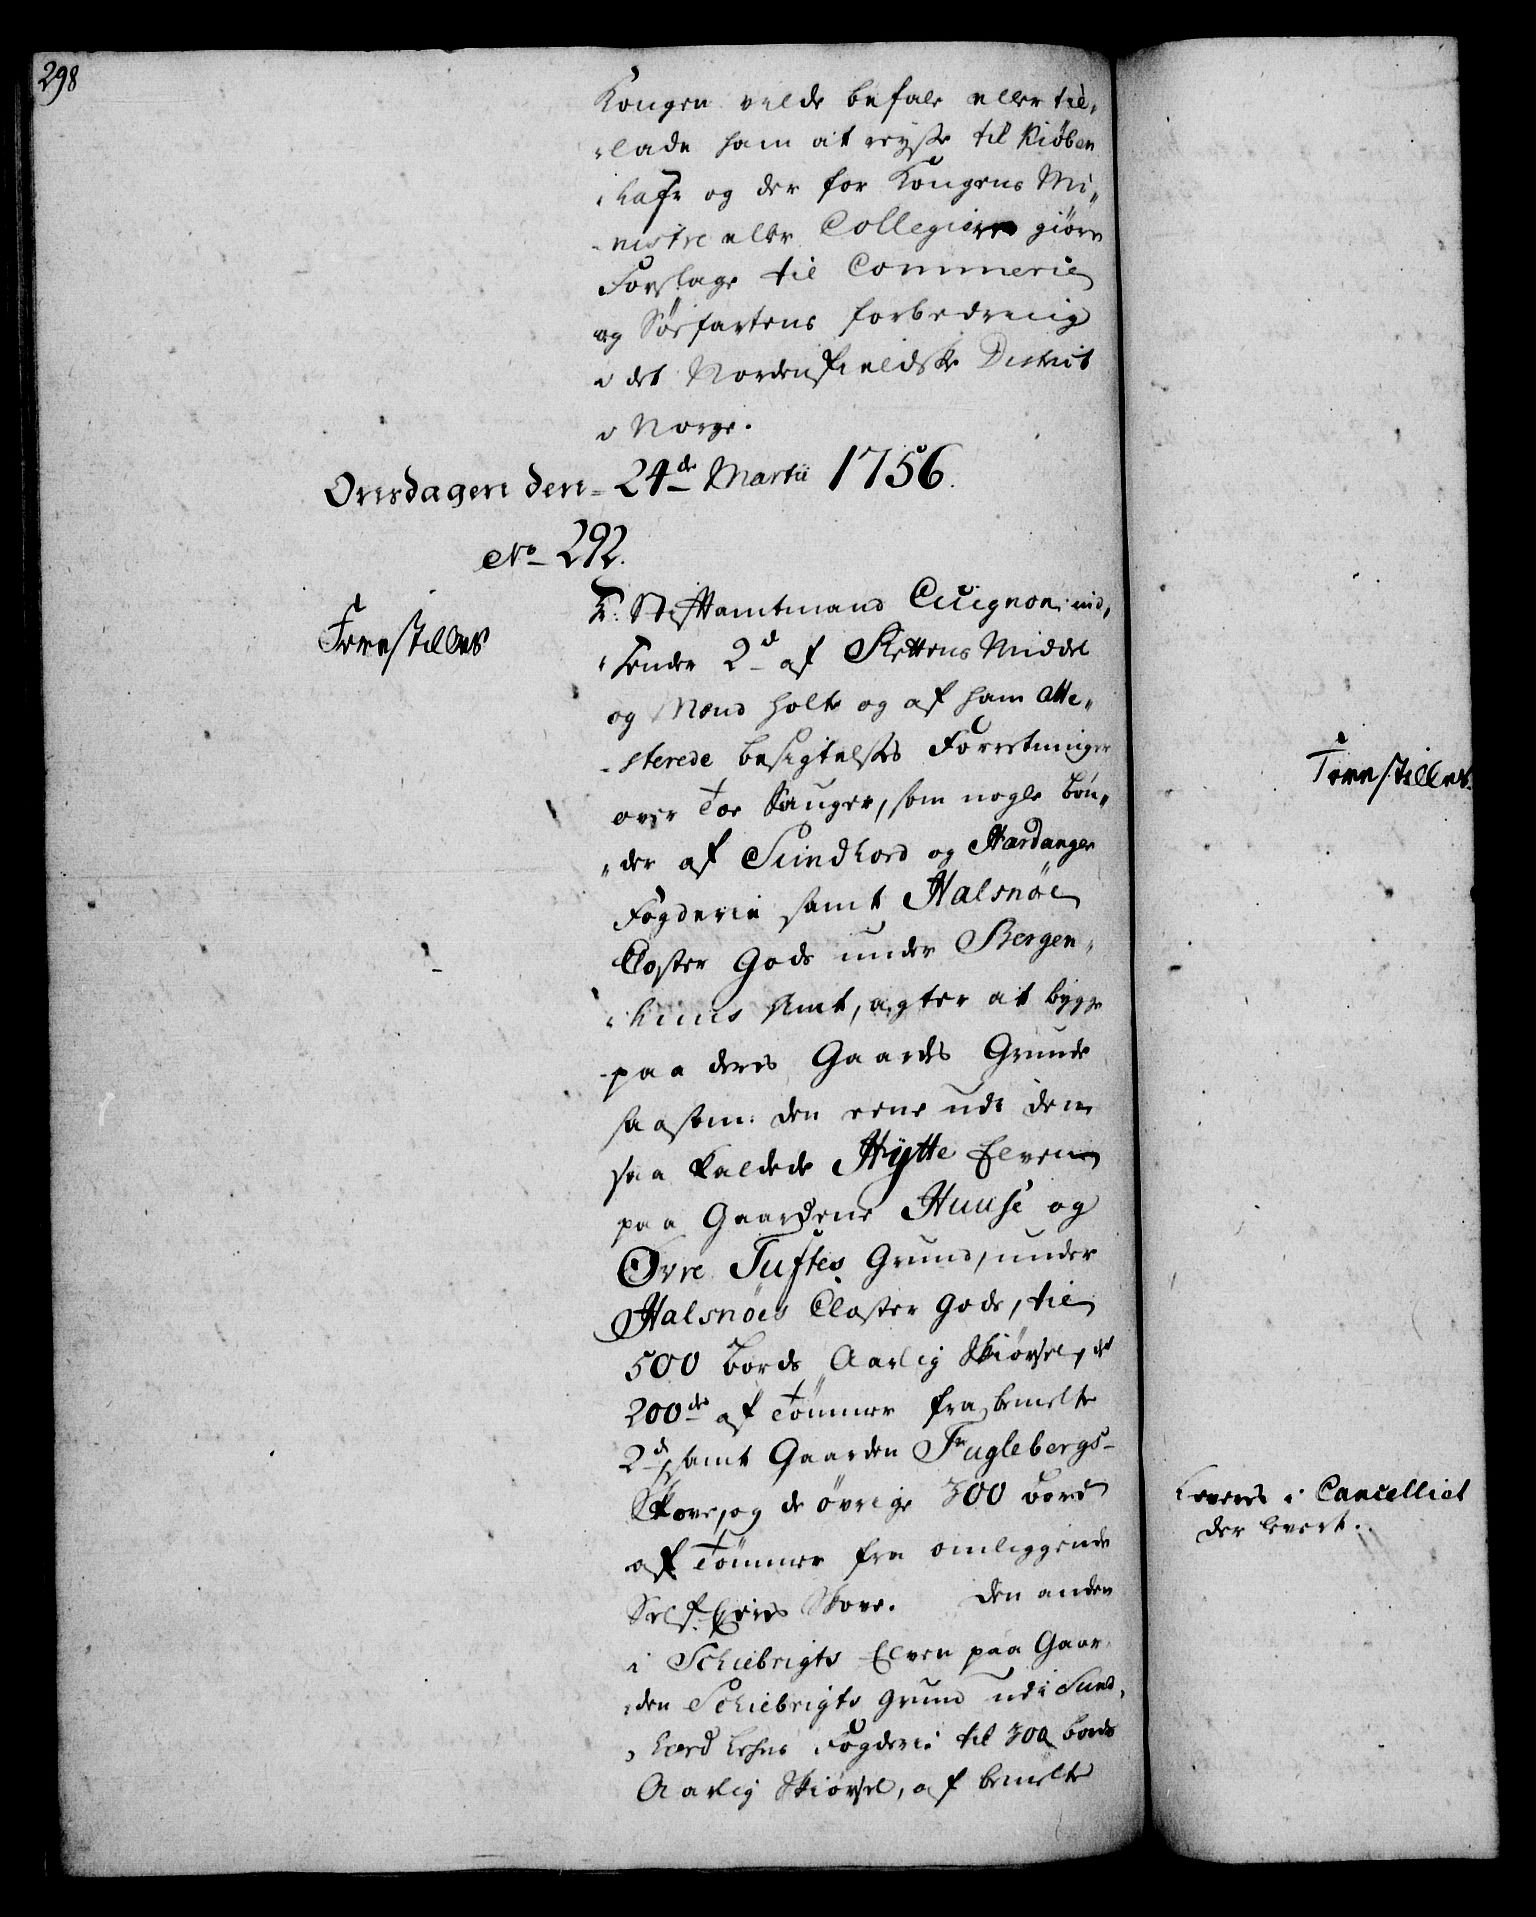 298
Kongen vilde befale eller til„
„lade ham at reyse til Kiøben
„hafn og der for Kongens Mi„
„nistre eller Collegierne giøre
Forslage til Commercie
og Søefartens forbedring
i det Nordenfieldske District
i Norge.
Onsdagen den 24de Martii 1756.
No 292.
Forestilles
Stiftamtmand Cicignon ind„
„sender 2de af Rettens Middel
og Mænd holte og af ham atte„
„sterede besigtelses Forretninger
over Toe Sauger, som nogle bøn„
„der af Sundhord og Hardanger
Fogderie samt Halsnøe
Closter Gods under Bergen„
„huus Amt, agter at bygge
paa deris Gaards Grunde
saasom: den eene udi den
saa kaldede Hytte Elven
paa Gaardene Huuse og
Øvre Tuftes Grund, under
Halsnöes Closter Gods, til
500 bords Aarlig Skiørsel, de
200de af Tømmer fra bemelte
2de samt Gaarden Fuglebergs
Skove, og de øvrige 300 bord
af Tømmer fra omliggende
Self-Eeres Skove. Den anden
i Schiebrigts Elven paa Gaar„
„den Schiebrigts grund udi Sund„
„hord Lehns Fogderi til 300 bords
Aarlig Skiørsel, af bemelte
Forestilles
Leveres i Cancelliet
der levert.